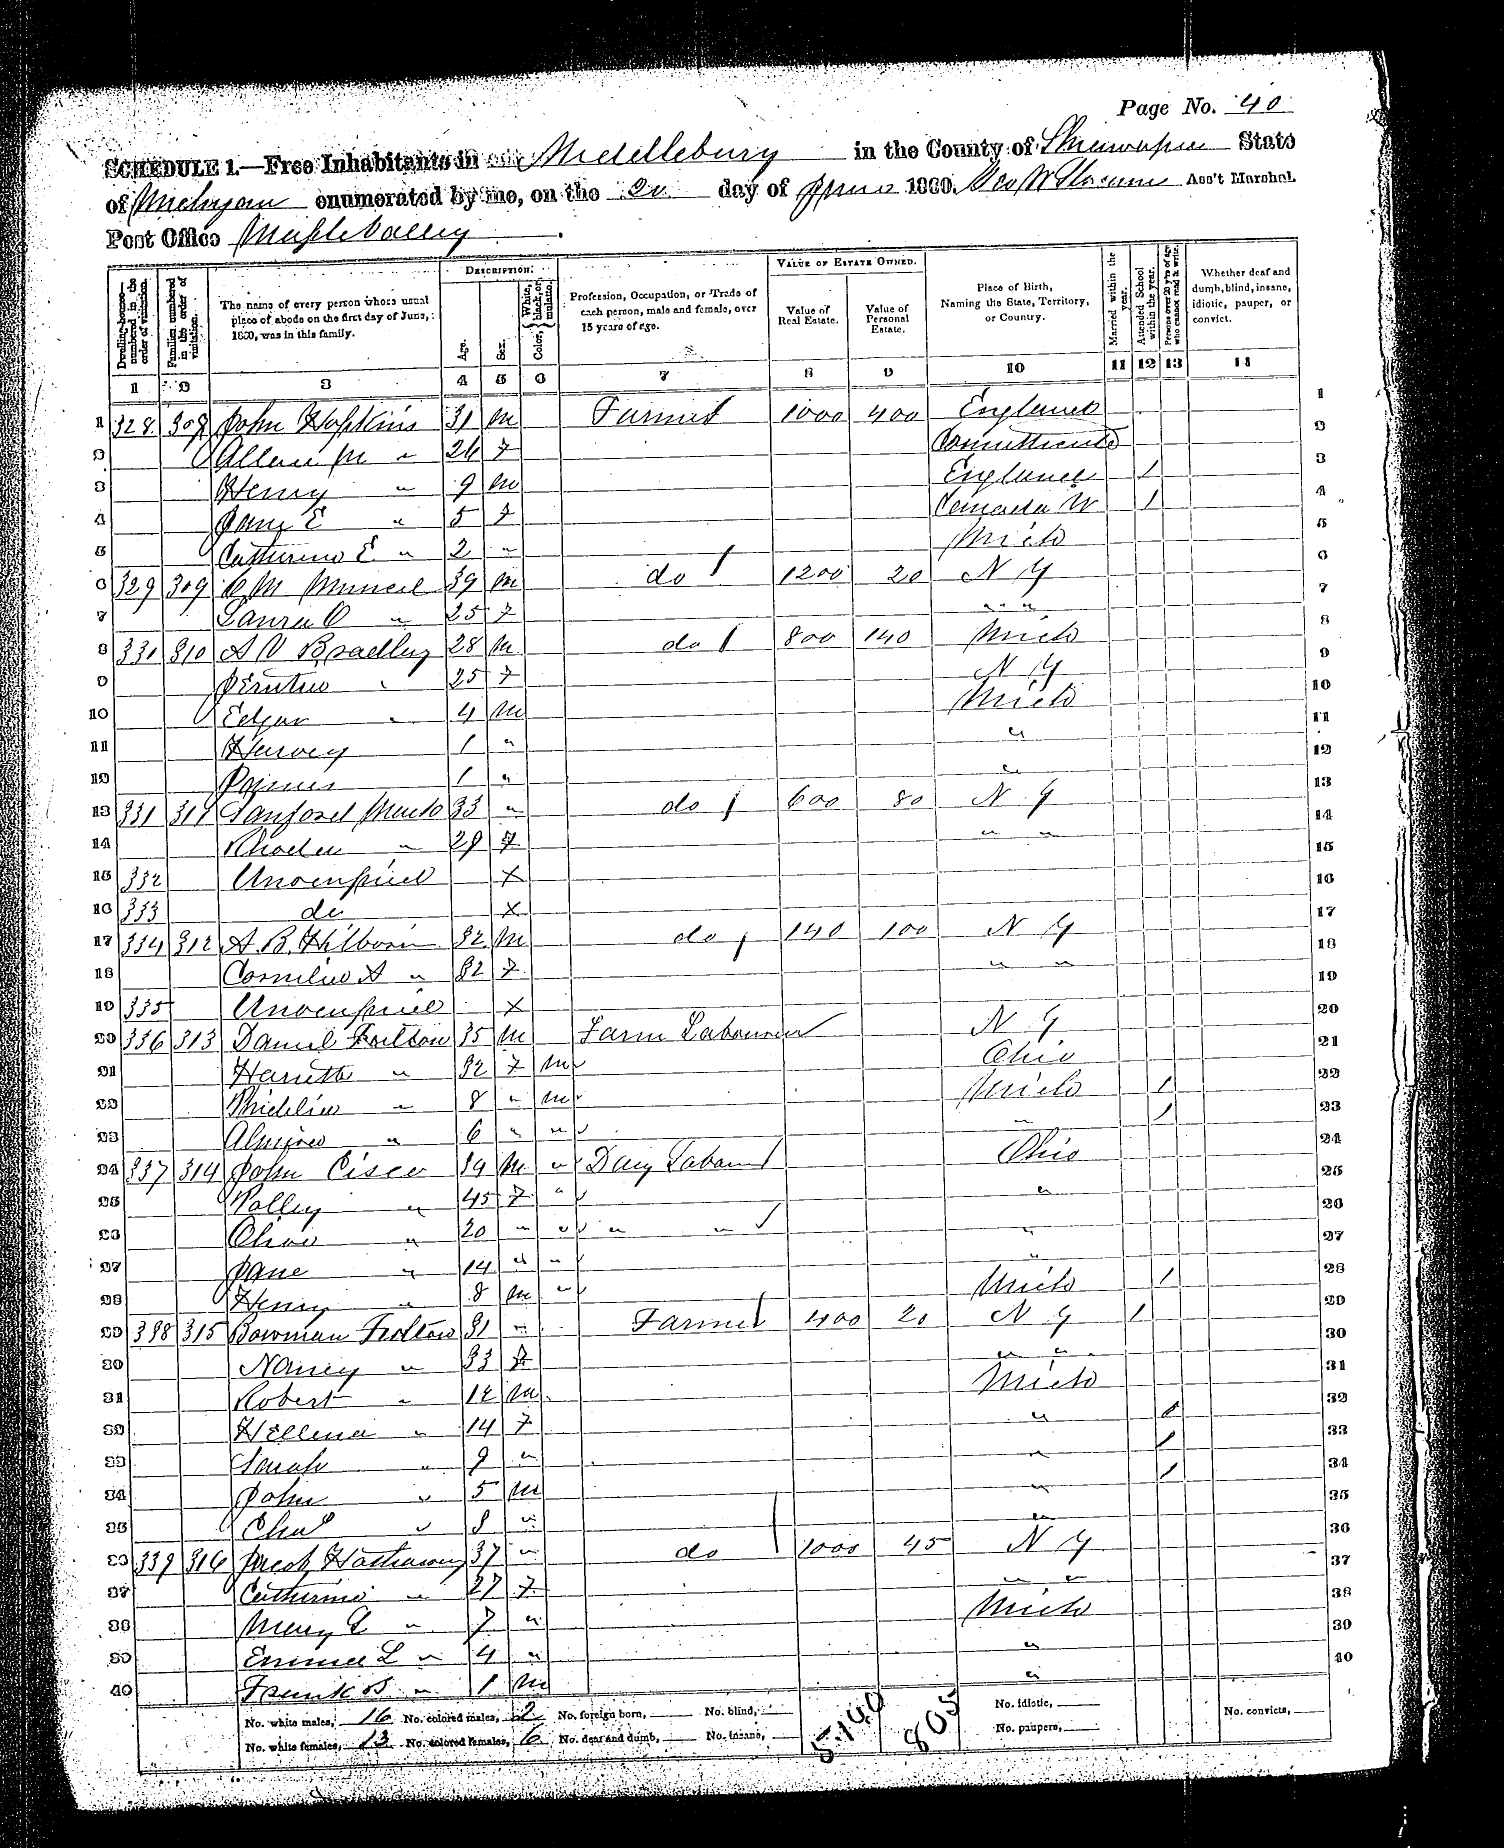 Page No. 40
SCHEDULE 1.—Free Inhabitants in Middlebury in the County of Shiawassee State
of Michigan enumerated by me, on the 20 day of June 1860. Geo W Slocum Ass't Marshal.
Post Office Maple Valley
Dwelling-house—numbered in the order of visitation.
Families numbered in the order of visitation.
The name of every person whose usual place of abode on the first day of June, 1860, was in this family.
DESCRIPTION.
Age.
Sex.
Color, White, black, or mulatto.
Profession, Occupation, or Trade of each person, male and female, over 15 years of age.
VALUE OF ESTATE OWNED.
Value of Real Estate.
Value of Personal Estate.
Place of Birth, Naming the State, Territory, or Country.
Married within the year.
Attended School within the year.
Persons over 20 y'rs of age who cannot read & write.
Whether deaf and dumb, blind, insane, idiotic, pauper, or convict.
1 2 3 4 5 6 7 8 9 10 11 12 13 14
1 328 308 John Hopkins 31 m Farmer 1000 400 England 1
2 Allen M " 26 f Connecticut 2
3 Henry " 9 m England / 3
4 Jane E " 5 f Canada W / 4
5 Catherine E " 2 " Mich 5
6 329 309 C M 39 m do / 1200 20 N Y 6
7 Laura O " 25 f " " 7
8 330 310 A V Bradley 28 m do / 800 140 Mich 8
9 " 25 f N Y 9
10 Edgar " 4 m Mich 10
11 Harvey 1 " " 11
12 1 " " 12
13 331 311 Sanford 33 " do / 600 80 N Y 13
14 Rhoda " 29 f " " 14
15 332 Unocupied x 15
16 333 do x 16
17 334 312 A. B. Hilborn 32 m do / 140 100 N Y 17
18 Cornelia A " 32 f " " 18
19 335 Unocupied x 19
20 336 313 Daniel Fulton 35 m Farm Labourer N Y 20
21 Harriett " 32 f m Ohio 21
22 " 8 " m Mich / 22
23 Almira " 6 " " " / 23
24 337 314 John Cisco 39 m " Day Labour Ohio 24
25 Polley " 45 f " " 25
26 Olive " 20 " " " " " 26
27 Jane " 14 " " " 27
28 Henry " 8 m " Mich / 28
29 338 315 Bowman Fulton 31 " Farmer 400 20 N Y 1 29
30 Nancy " 33 f " " 30
31 Robert " 12 m Mich 31
32 Hellena " 14 f " / 32
33 Sarah " 9 " " / 33
34 John " 5 m " / 34
35 Chas " 8 " " 35
36 339 316 Jacob Hathaway 37 " do 1000 45 N Y 36
37 Catherine " 27 f " " 37
38 Mary L " 7 " Mich 38
39 Emma L " 4 " " 39
40 Frank B " 1 m " 40
No. white males, 16 No. colored males, 2 No. foreign born, No. blind, 5,140 805 No. idiotic, No. convicts,
No. white females, 13 No. colored females, 6 No. deaf and dumb, No. insane, No. paupers,